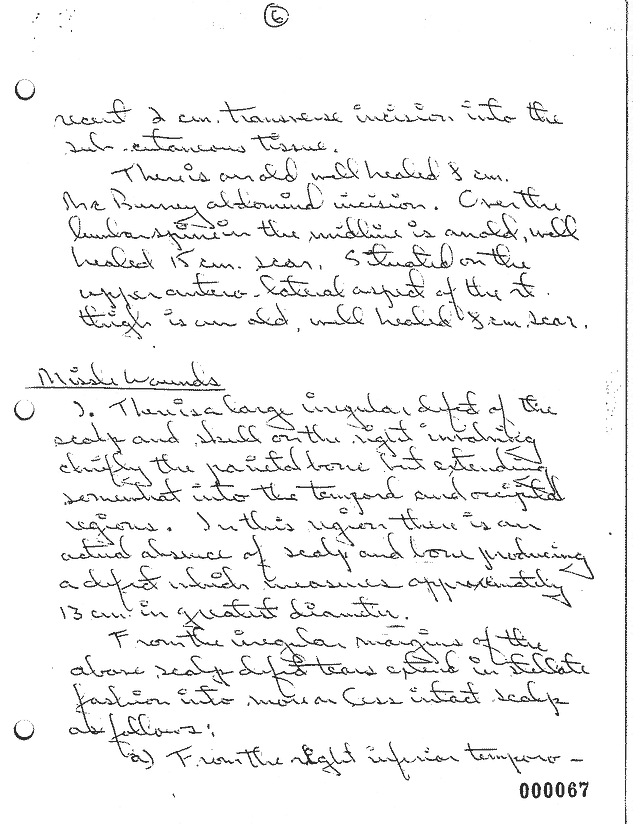 6
recent 2 cm. transverse incision into the
sub-cutaneous tissue.
There is an old well healed 8 cm.
McBurney abdominal incision. Over the
lumbar spine in the midline is an old, well
healed 15 cm. scar. Situated on the
upper antero-lateral aspect of the rt.
thigh is an old, well healed 8 cm. scar.
Missle Wounds
1. There is a large irregular defect of the
scalp and skull on the right involving
chiefly the parietal bone but extending
somewhat into the temporal and occipital
regions. In this region there is an
actual absence of scalp and bone producing
a defect which measures approximately
13 cm. in greatest diameter.
From the irregular margins of the
above scalp defect tears extend in stellate
fashion into more or less intact scalp
as follows:
a) From the right inferior temporo-
000067